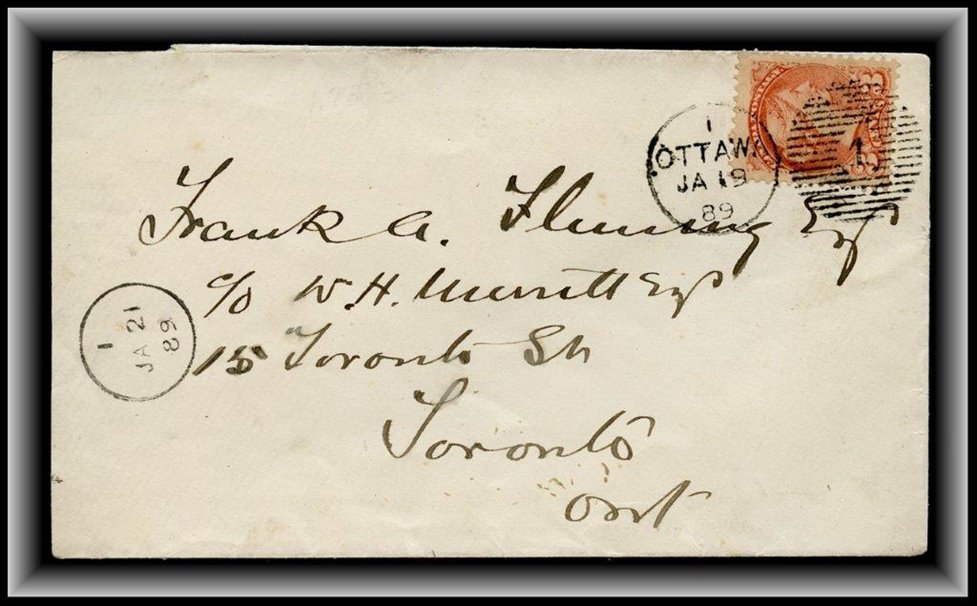 1
OTTAWA
JA 19
89
1
3
Frank A. Fleming Esq
c/o W. H. Merritt Esq
15 Toronto St
Toronto
Ont
1
JA 21
89